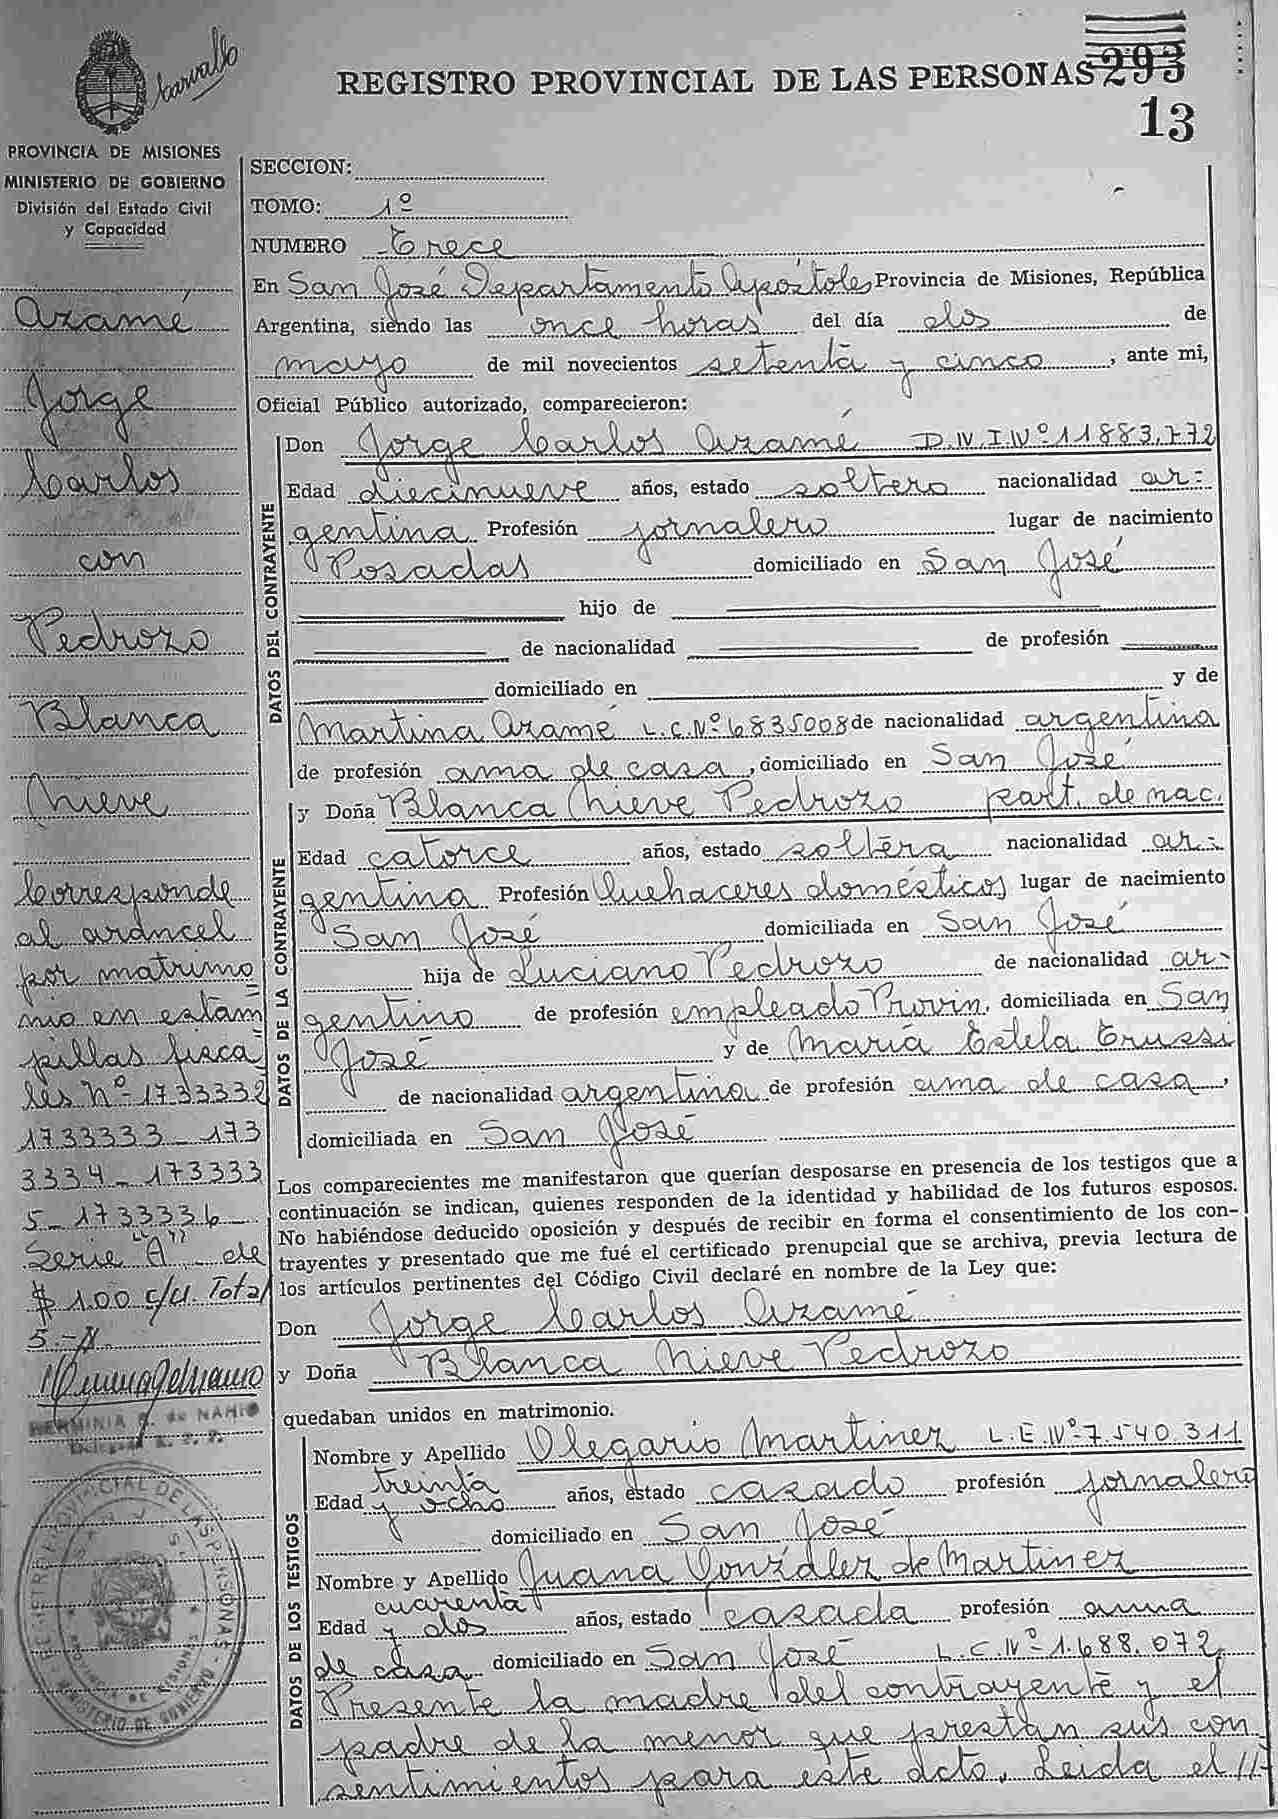 Carvallo
REGISTRO PROVINCIAL DE LAS PERSONAS 293
13
PROVINCIA DE MISIONES
MINISTERIO DE GOBIERNO
División del Estado Civil
y Capacidad
Azamé
Jorge
Carlos
con
Pedrozo
Blanca
Nieve
Corresponde
al arancel
por matrimo
nio en estam
pillas fisca
les Nº 1733332
1733333 - 173
3334 - 173333
5 - 1733336
Serie "A" de
$ 1.00 c/u. Total
5.-
HERMINIA de NAHIO
SECCION:
TOMO: 1º
NUMERO Trece
En San José Departamento Apóstoles Provincia de Misiones, República
Argentina, siendo las once horas del día dos de
mayo de mil novecientos setenta y cinco, ante mi,
Oficial Público autorizado, comparecieron:
DATOS DEL CONTRAYENTE
Don Jorge Carlos Azamé D.N.I.Nº 11883.772
Edad diecinueve años, estado soltero nacionalidad ar=
gentina Profesión jornalero lugar de nacimiento
Posadas domiciliado en San José
hijo de
de nacionalidad de profesión
domiciliado en y de
Martina Azamé L.C.Nº 6835008 de nacionalidad argentina
de profesión ama de casa, domiciliado en San José
DATOS DE LA CONTRAYENTE
y Doña Blanca Nieve Pedrozo part. de nac.
Edad catorce años, estado soltera nacionalidad ar=
gentina Profesión Quehaceres domésticos lugar de nacimiento
San José domiciliada en San José
hija de Luciano Pedrozo de nacionalidad ar-
gentino de profesión empleado Provin. domiciliada en San
José y de María Estela Trussi
de nacionalidad argentina de profesión ama de casa,
domiciliada en San José
Los comparecientes me manifestaron que querían desposarse en presencia de los testigos que a
continuación se indican, quienes responden de la identidad y habilidad de los futuros esposos.
No habiéndose deducido oposición y después de recibir en forma el consentimiento de los con-
trayentes y presentado que me fué el certificado prenupcial que se archiva, previa lectura de
los artículos pertinentes del Código Civil declaré en nombre de la Ley que:
Don Jorge Carlos Azamé
y Doña Blanca Nieve Pedrozo
quedaban unidos en matrimonio.
DATOS DE LOS TESTIGOS
Nombre y Apellido Olegario Martinez L.E.Nº 7.540.311
Edad treinta y ocho años, estado casado profesión jornalero
domiciliado en San José
Nombre y Apellido Juana González de Martinez
Edad cuarenta y dos años, estado casada profesión ama
de casa domiciliado en San José L.C.Nº 1.688.072
Presente la madre del contrayente y el
padre de la menor que prestan sus con
sentimientos para este acto. Leida el